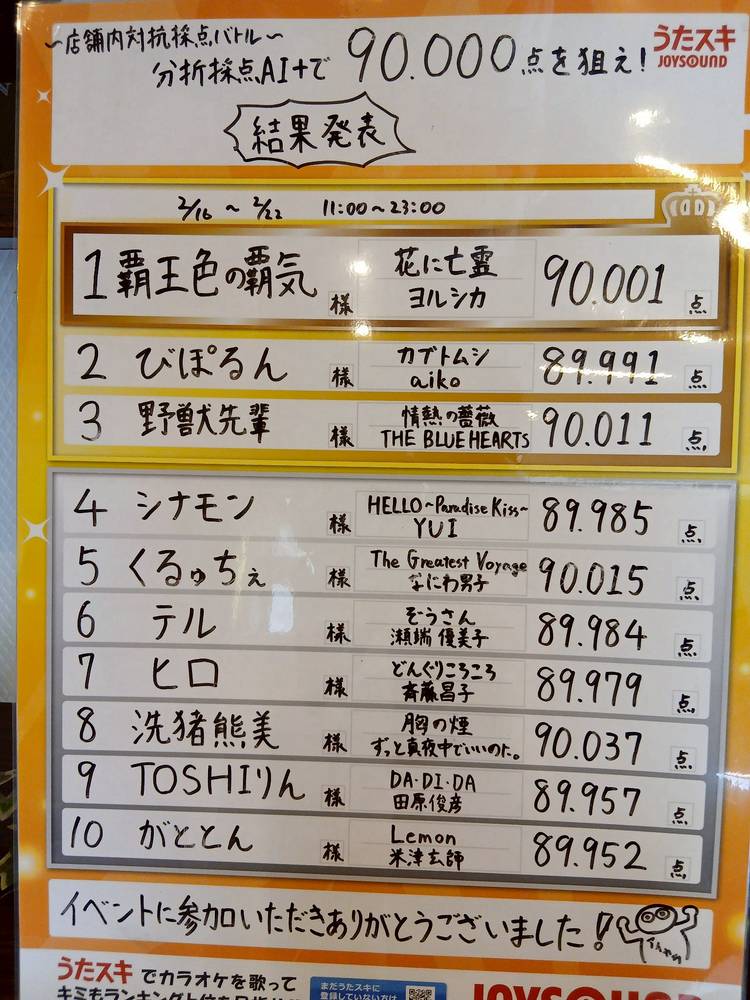 ～店舗内対抗採点バトル～
分析採点AI+で 90.000点を狙え！
うたスキ
JOYSOUND
結果発表
2/16 ～ 2/22 11:00～23:00
1 覇王色の覇気 様 花に亡霊 90.001 点
ヨルシカ
2 びぽるん 様 カブトムシ 89.991 点
aiko
3 野獣先輩 様 情熱の薔薇 90.011 点
THE BLUE HEARTS
4 シナモン 様 HELLO～Paradise Kiss～ 89.985 点
YUI
5 くるゅちぇ 様 The Greatest Voyage 90.015 点
なにわ男子
6 テル 様 ぞうさん 89.984 点
瀬端優美子
7 ヒロ 様 どんぐりころころ 89.979 点
斉藤昌子
8 洗猪熊美 様 胸の煙 90.037 点
ずっと真夜中でいいのに。
9 TOSHIりん 様 DA・DI・DA 89.957 点
田原俊彦
10 がととん 様 Lemon 89.952 点
米津玄師
イベントに参加いただきありがとうございました！
うたスキでカラオケを歌って
まだうたスキに
登録していない方は
JOYSOUND